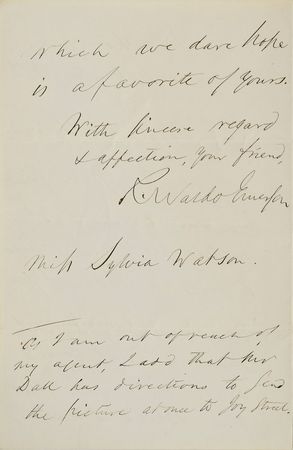 which we dare hope
is a favorite of yours.
With sincere regard
& affection, your friend,
R. Waldo Emerson
Miss Sylvia Watson.
I am out of reach of
my agent, I add that Mr
Dall has directions to send
the picture at once to Joy Street.